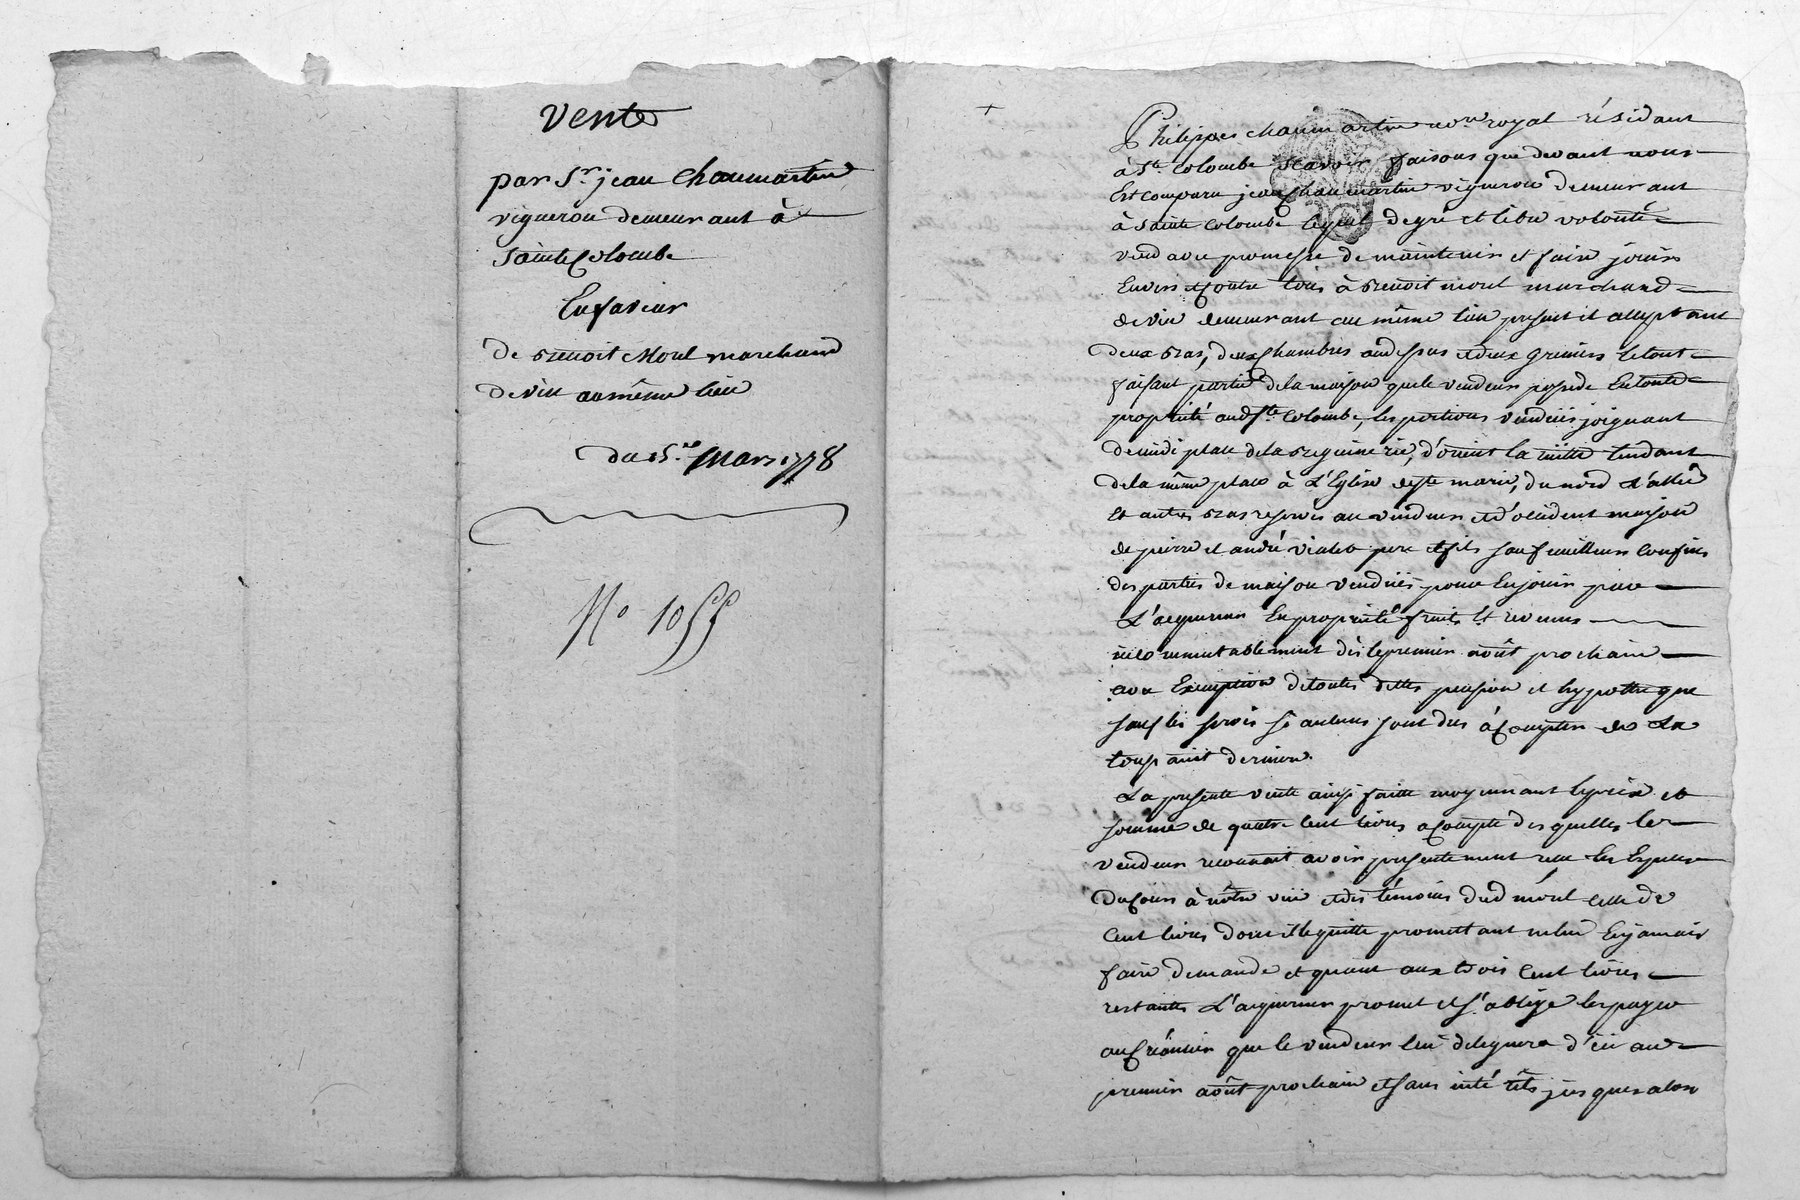 Vente
par Sr. jean Chaumartin
vigneron demeurant à
Sainte Colombe
En faveur
de Benoit Morel marchand
de vin au même lieu
du 15.e Mars 1778
No 1055
Philippes chaumartin no.re royal résidant
à Ste. Colombe scavoir faisons que devant nous
Est comparu jean chaumartin vigneron demeurant
à Sainte Colombe lequel de gré et libre volonté
vend avec promesse de maintenir et faire jouir
Envers et contre tous à Benoit morel marchand
de vin demeurant au même lieu present et acceptant
deux bas, deux chambres au dessus et deux greniers le tout
faisant partie de la maison que le vendeur possede En toute
propriété aud. Ste Colombe, les portions vendües joignant
de midi place de la , d'orient la tendant
de la même place à L'Eglise de ste marie, du nord L'allée
Et autres bas reservés au vendeur et d'occident maison
de pierre et andré pere et fils sauf meilleurs confins
des parties de maison vendües pour En jouir par
L'acquereur En proprieté fruits Et revenus
incommutablement dès le premier août prochain
avec Exemption de toutes dettes pension et hypotheque
sauf les servis si aucuns sont dus à compter de La
toussaint derniere.
La presente vente ainsi faitte moyennant le prix et
somme de quatre cent livres a compte des quelles le
vendeur reconnait avoir presentement reçu En Especes
du cours à nôtre vüe et des témoins dud. morel celle de
Cent livres dont il le quitte promettant ne lui En jamais
faire demande et quant aux trois Cent livres
restantes L'acquereur promet et s'oblige les payer
au créancier que le vendeur lui deleguera d'ici au
premier août prochain et sans intérêts jusques alors